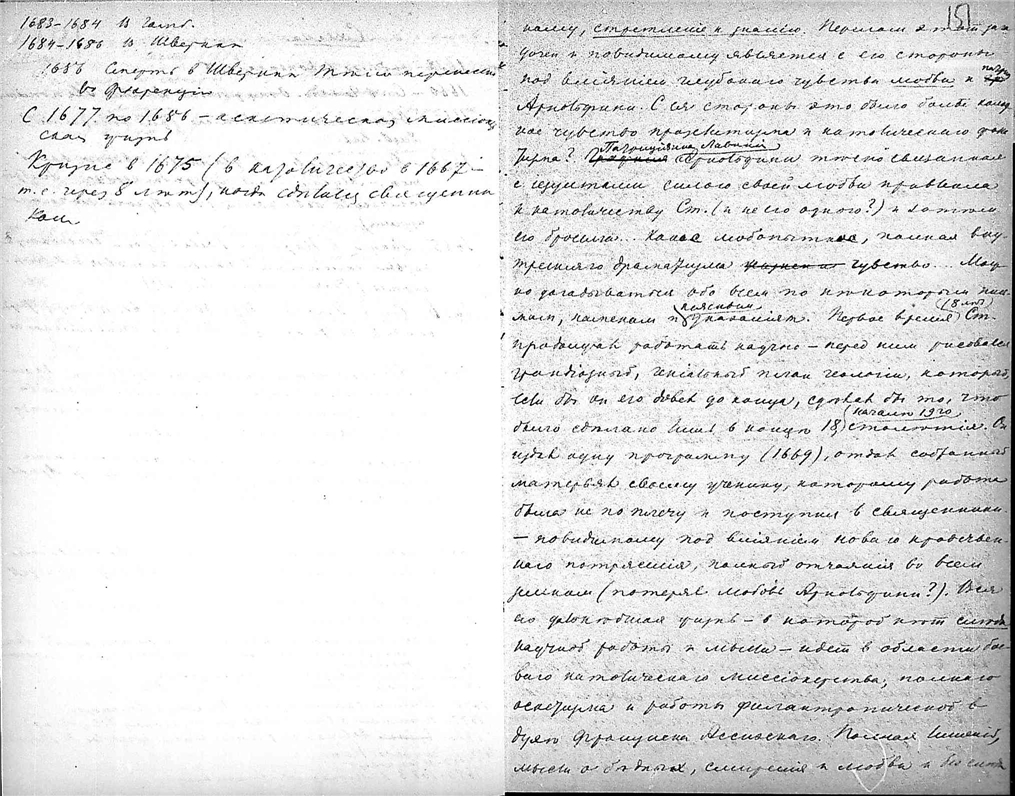 1683–1684 в Гамб.
1684–1686 в Шверине
1686 Смерть в Шверине Тело перенесено
во Флоренцию
С 1677 по 1686 – аскетическая миссіонер
ская жизнь
Кризис в 1675 (в католичество в 1667 –
т.е. через 8 лет), когда сдѣлался священни
ком
151
ному, стремленіе к знанію. Перелом этот
и повидимому является с его стороны
под вліяніем глубокаго чувства любви к
Арнольфини. С ея стороны это было болѣе
ное чувство прозелитизма и католическаго фана
тизма? Лавинія Арнольфини тѣсно связанная
с іезуитами силою своей любви привлекла
к католичеству Ст. (и не его одного?) и затѣм
его бросила... Какое любопытное, полная вну
тренняго драматизма чувство... Мож
но догадываться обо всем по нѣкоторым пись
мам, намекам и указаніям. Первое время (8 лѣт) Ст.
продолжал работать научно – перед ним рисовался
грандіозный, геніальный план геологіи, который
если бы он его довел до конца, сдѣлал бы то, что
было сдѣлано лишь в концѣ 18, началѣ 19го столѣтія. Он
издал одну программу (1669), отдал собранный
матерьял своему ученику, которому работа
была не по плечу и поступил в священники
– повидимому под вліяніем новаго нравствен
наго потрясенія, полный отчаянія во всем
земном (потеряв любовь Арнольфини?). Вся
его дальнѣйшая жизнь – в которой нѣт слѣда
научной работы и мысли – идет в области бое
ваго католическаго миссіонерства, полнаго
аскетизма и работы филантропической в
духѣ Франциска Ассизскаго. Полная лишеній,
мысли о бѣдных, смиренія и любви и